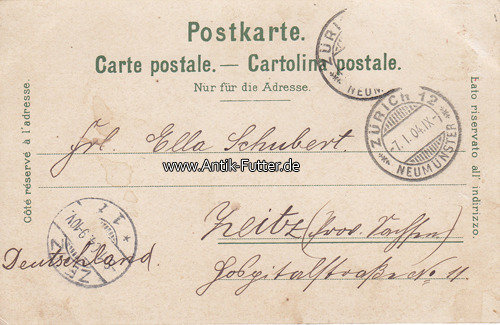 Postkarte.
Carte postale. — Cartolina postale.
Nur für die Adresse.
Côté réservé à l'adresse.
Lato riservato all' indirizzo.
ZÜRI
NEUM
ZÜRICH 12
-7.I.04.IX-
NEUMÜNSTER
Frl. Ella Schubert.
www.Antik-Futter.de
Zeitz (Prov. Sachsen)
Hospitalstraße No 11
Deutschland.
ZEITZ